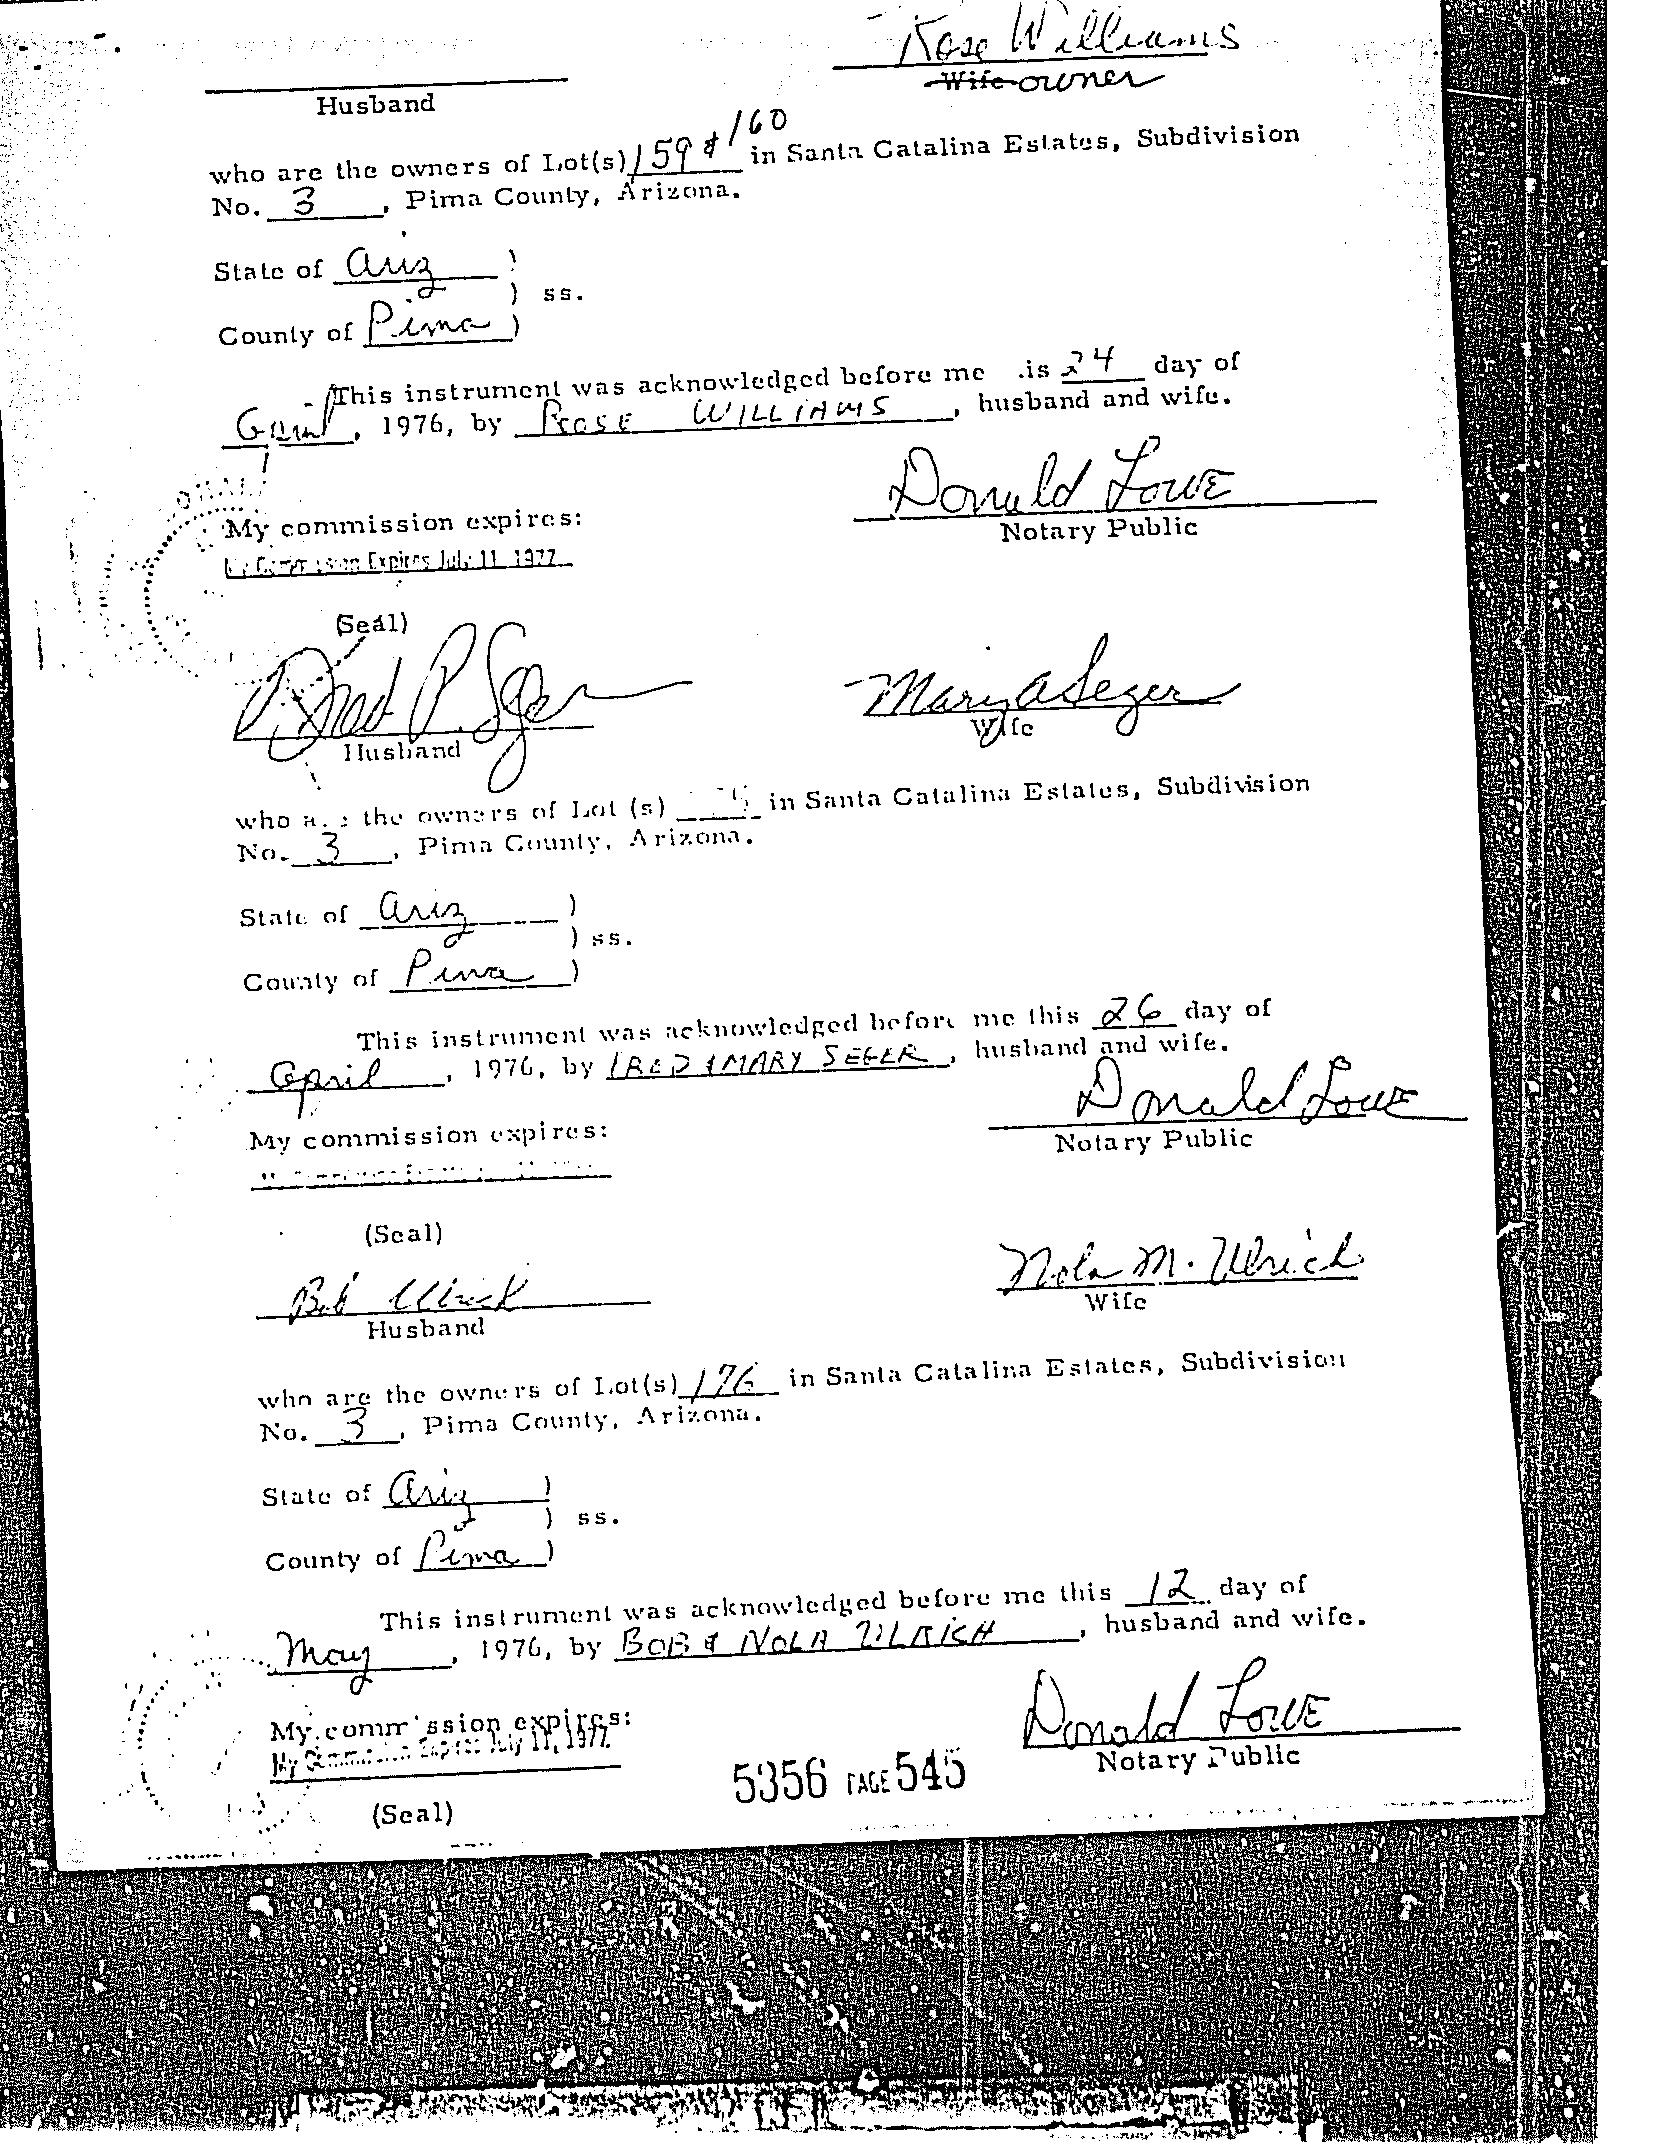 Rose Williams
Husband
Wife owner
who are the owners of Lot(s) 159 & 160 in Santa Catalina Estates, Subdivision
No. 3, Pima County, Arizona.
State of Ariz )
) ss.
County of Pima )
This instrument was acknowledged before me is 24 day of
April, 1976, by ROSE WILLIAMS, husband and wife.
Donald Lowe
My commission expires:
Notary Public
My Commission Expires July 11, 1977
(Seal)
P. Seger
Mary A Seger
Husband
Wife
who are the owners of Lot (s) in Santa Catalina Estates, Subdivision
No. 3, Pima County, Arizona.
State of Ariz )
) ss.
County of Pima )
This instrument was acknowledged before me this 26 day of
April, 1976, by & MARY SEGER, husband and wife.
Donald Lowe
My commission expires:
Notary Public
(Seal)
Bob Ulrich
Nola M. Ulrich
Husband
Wife
who are the owners of Lot(s) 176 in Santa Catalina Estates, Subdivision
No. 3, Pima County, Arizona.
State of Ariz )
) ss.
County of Pima )
This instrument was acknowledged before me this 12 day of
May, 1976, by BOB & NOLA ULRICH, husband and wife.
Donald Lowe
My commission expires:
My Commission Expires July 11, 1977
Notary Public
5356 PAGE 545
(Seal)